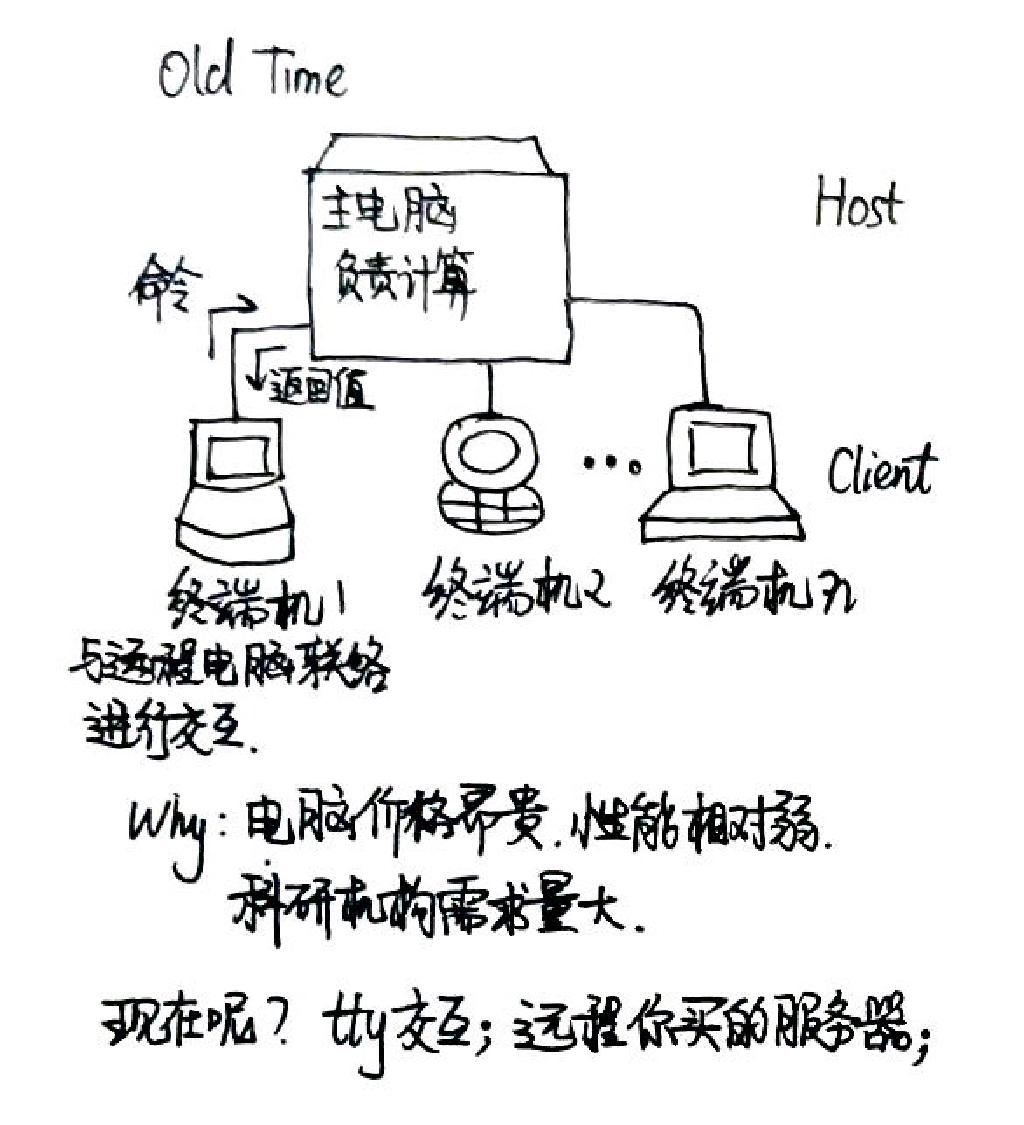 Old Time
主电脑
Host
负责计算
命令
返回值
Client
终端机1
终端机2
终端机n
与远程电脑联络
进行交互.
Why: 电脑价格昂贵.性能相对弱.
科研机构需求量大.
现在呢? tty交互; 远程你买的服务器;